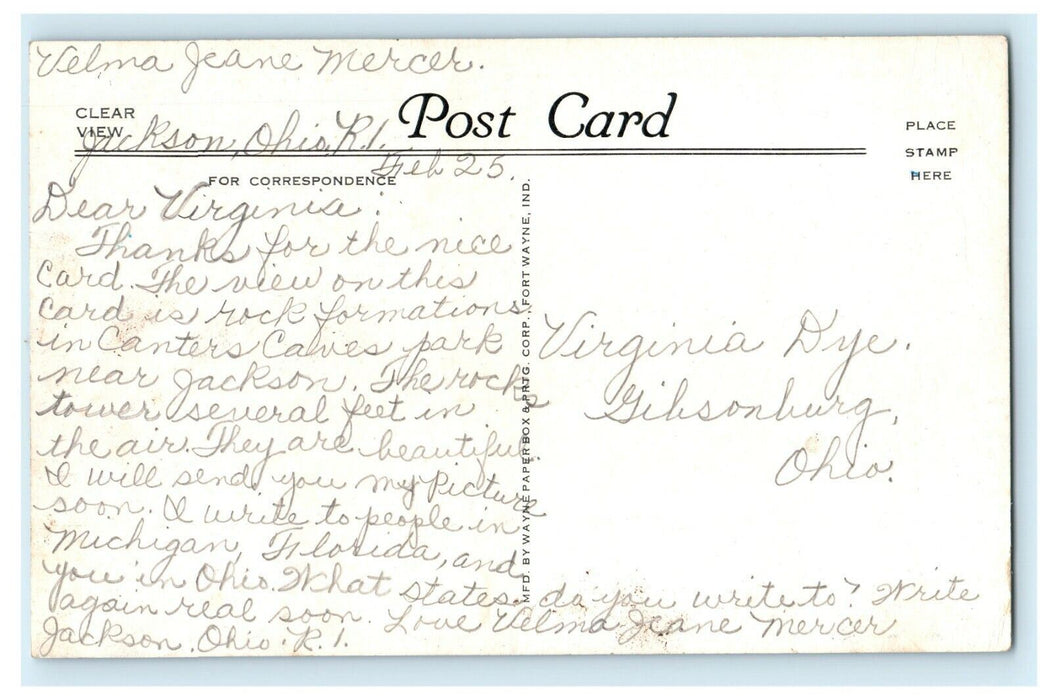 Velma Jeane Mercer.
CLEAR VIEW
Post Card
PLACE STAMP HERE
Jackson, Ohio, R.1.
Feb 25.
FOR CORRESPONDENCE
Dear Virginia:
Thanks for the nice
card. The view on this
card is rock formations
in Canters Caves park
near Jackson. The rocks
tower several feet in
the air. They are beautiful.
I will send you my Picture
soon. I write to people in
Michigan, Florida, and
you in Ohio. What states do you write to? Write
again real soon. Love Velma Jeane Mercer
Jackson, Ohio R.1.
MFD. BY WAYNE PAPER BOX & PRTG. CORP., FORT WAYNE, IND.
Virginia Dye.
Gibsonburg,
Ohio.